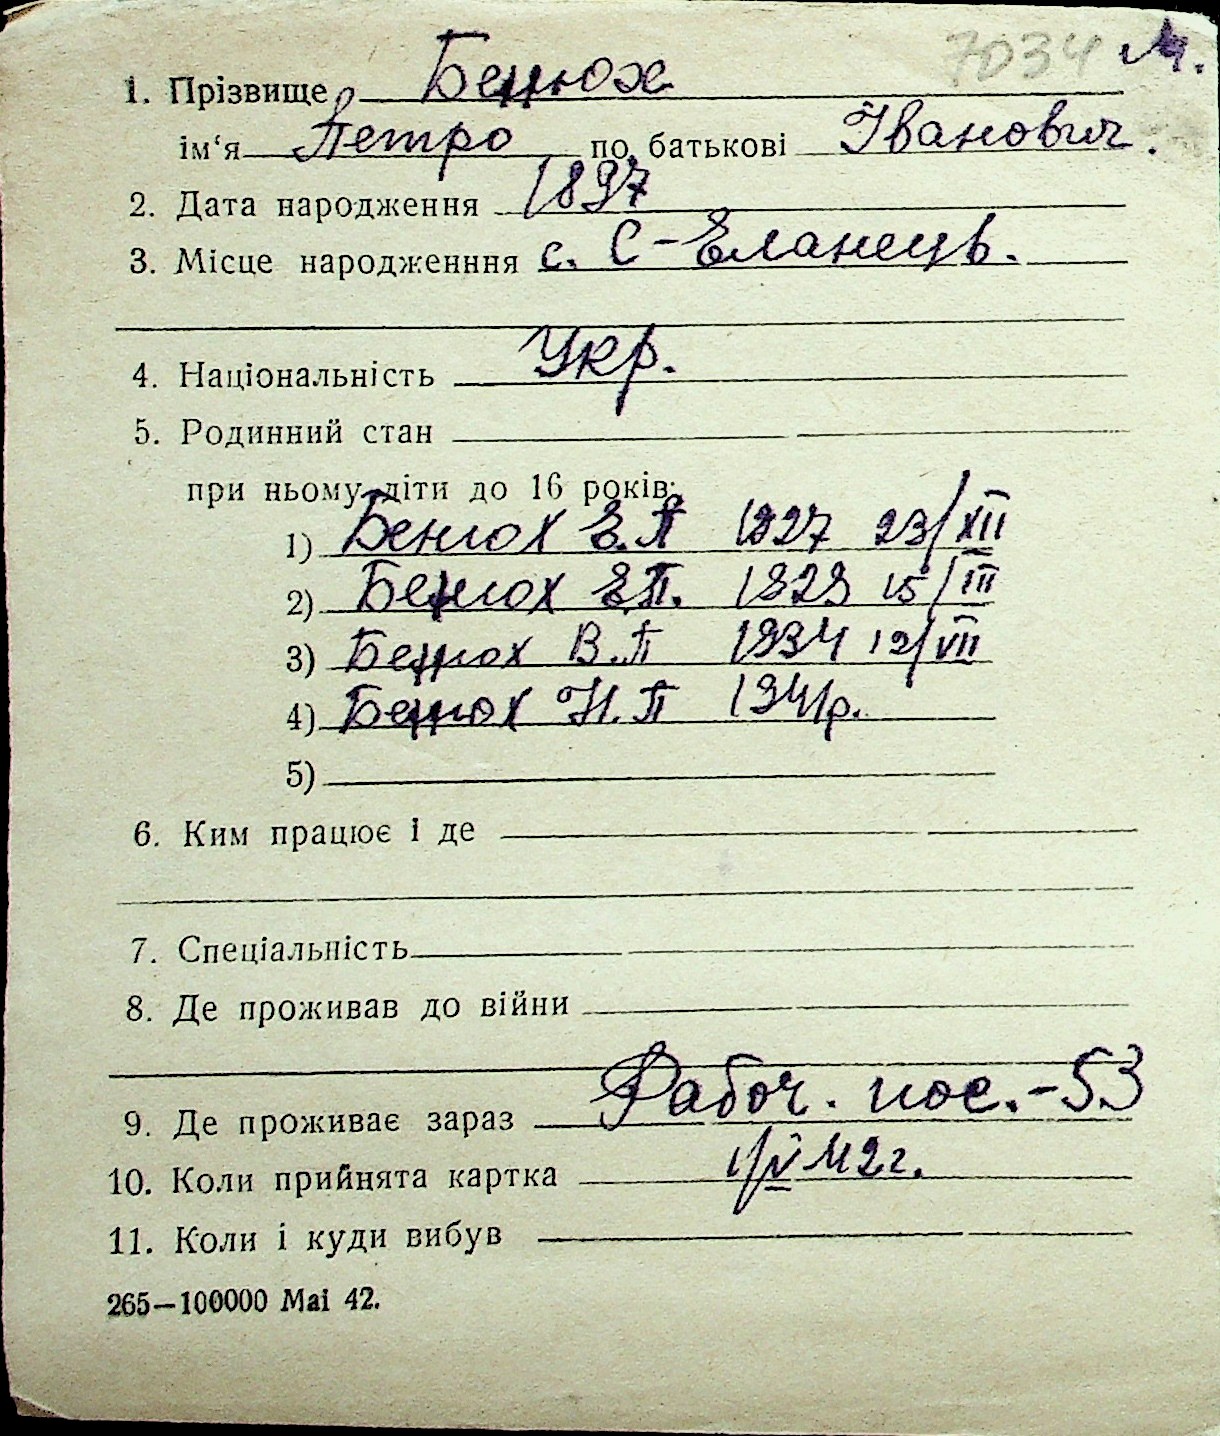 7034 М.
1. Прізвище Бенюх
ім‘я Петро по батькові Іванович.
2. Дата народження 1897
3. Місце народженння с. С-Еланець.
4. Національність Укр.
5. Родинний стан
при ньому діти до 16 років:
1) Бенюх Е.П 1927 23/XII
2) Бенюх Е.П. 1929 15/III
3) Бенюх В.П 1934 12/VII
4) Бенюх Н.П 1941р.
5)
6. Ким працює і де
7. Спеціальність
8. Де проживав до війни
9. Де проживає зараз Рабоч. пос.-53
10. Коли прийнята картка 1/V 42г.
11. Коли і куди вибув
265—100000 Mai 42.